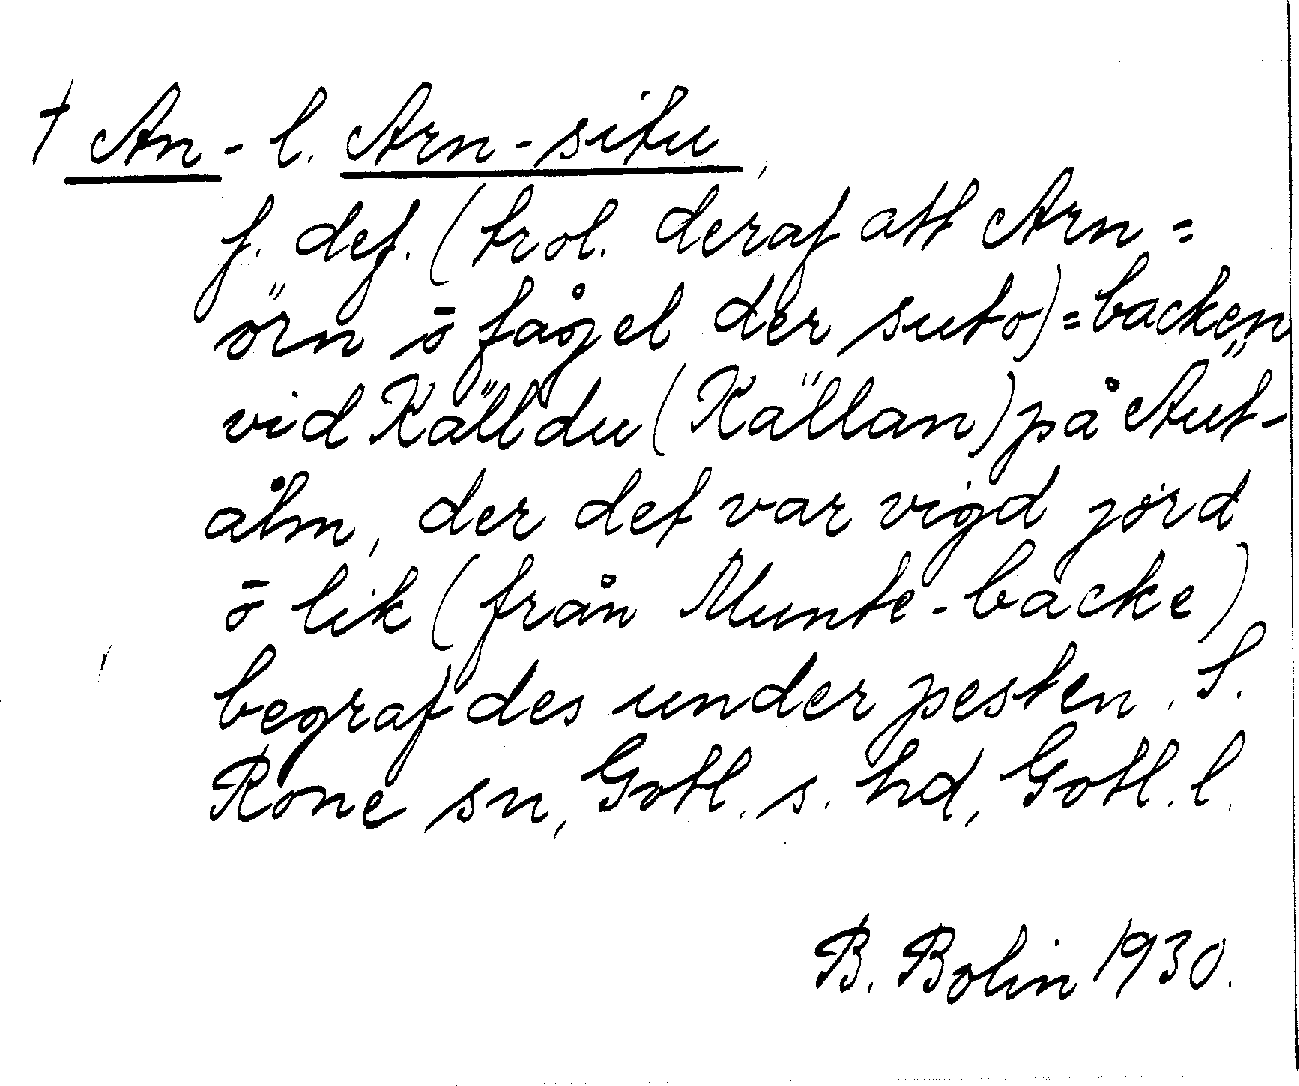 † An- l. Arn-situ,
f. def. (trol. deraf att Arn =
örn ō fågel der suto) = backen
vid Källdu (Källan) på Aut-
ålm, der det var vigd jord
ō lik (från Munte-backe)
begrafdes under pesten. S.
Rone sn, Gotl. s. hd, Gotl. l.
B. Bolin 1930.